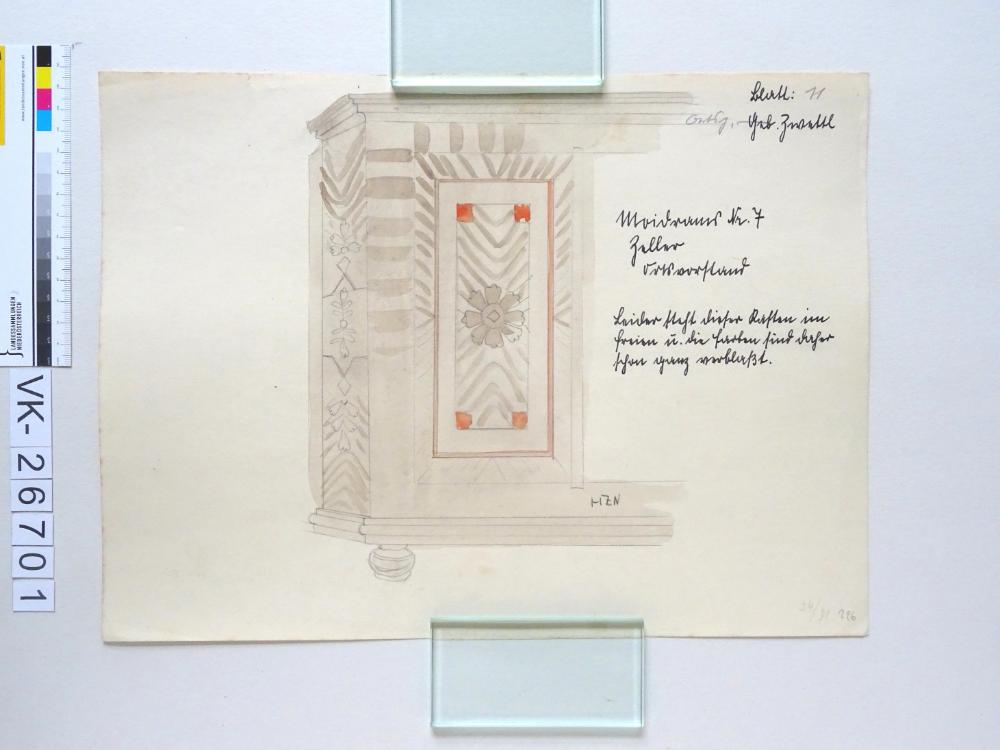 Blatt: 11
Geb. Zwettl
Moidrams Nr. 7
Zeller
Ortsvorstand
Leider steht dieser Kasten im
Freien u. die Farben sind daher
schon ganz verblaßt.
HZN
VK-26701
LANDESSAMMLUNGEN
NIEDERÖSTERREICH